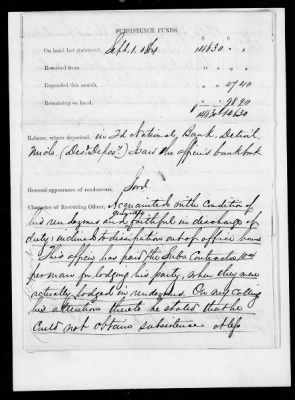 SUBSISTENCE FUNDS.
On hand last statement, Sept. 1. 1864 146 30 " "
Received from " " " "
Expended this month, " " 47 40
Remaining on hand, " 98 90
146 30 146 30
Balance, where deposited, in 2d National Bank Detroit
Mich. (Des. Depos.) I saw the officers bank book
General appearance of rendezvous, Good
Character of Recruiting Officer, Acquainted with condition of
his rendezvous and faithful in discharge of
duty: inclined to dissipation out of office hours
This officer has paid the Subs. Contractor
per man for lodging his party, when they were
actually lodged in rendezvous. On my calling
his attention thereto he stated that he
could not obtain subsistence at less